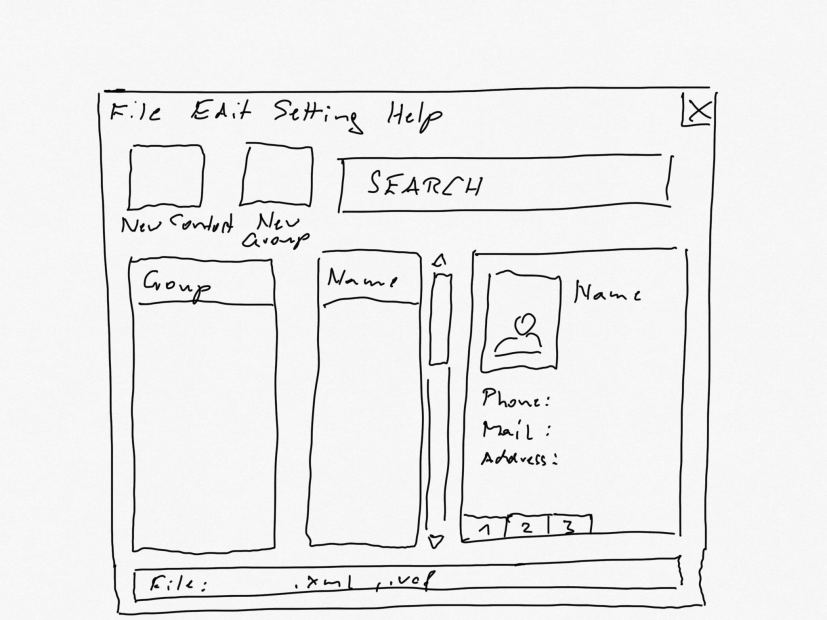 File Edit Setting Help
X
SEARCH
New Contact New
Group
Group
Name
Name
Phone:
Mail :
Address:
1 2 3
File: .xml , .vcf